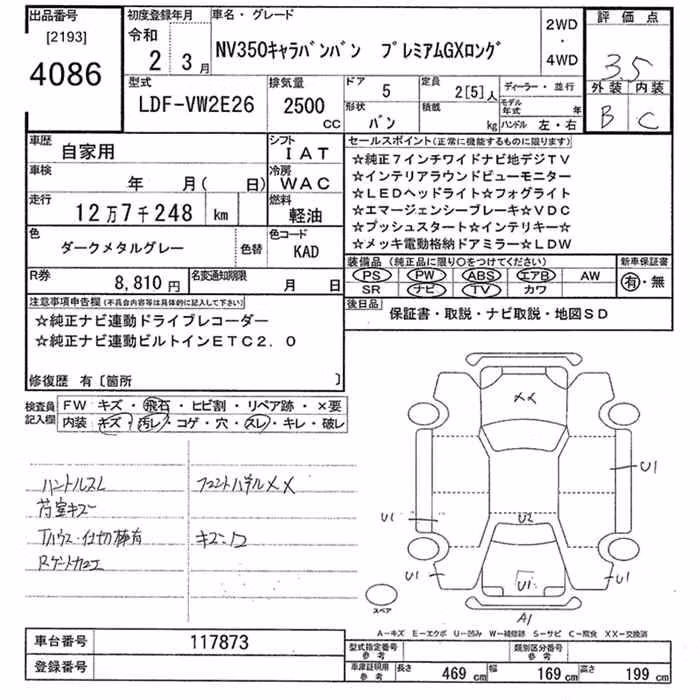 出品番号
[2193]
4086
初度登録年月
令和
2 3月
車名・グレード
NV350キャラバンバン プレミアムGXロング
2WD
・
4WD
評価点
3.5
外装 内装
B C
型式
LDF-VW2E26
排気量
2500
cc
ドア
5
定員
2[5]人
ディーラー・並行
モデル年式 年
形状
バン
積載
kg
ハンドル 左・右
車歴
自家用
シフト
IAT
車検
年 月( 日)
冷房
WAC
走行
12万7千248 km
燃料
軽油
色
ダークメタルグレー
色替
色コード
KAD
R券
8,810円
名変通知期限
月 日
セールスポイント(正常に機能するものに限ります)
☆純正7インチワイドナビ地デジTV
☆インテリアラウンドビューモニター
☆LEDヘッドライト☆フォグライト
☆エマージェンシーブレーキ☆VDC
☆プッシュスタート☆インテリキー☆
☆メッキ電動格納ドアミラー☆LDW
装備品(純正品に限り○をつけてください)
PS PW ABS エアB AW
SR ナビ TV カワ
新車保証書
有・無
後日品
保証書・取説・ナビ取説・地図SD
注意事項申告欄(不具合内容等は具体的に記入して下さい)
☆純正ナビ連動ドライブレコーダー
☆純正ナビ連動ビルトインETC2.0
修復歴 有〔箇所 〕
検査員記入欄
FW キズ・飛石・ヒビ割・リペア跡・×要
内装 キズ・汚レ・コゲ・穴・スレ・キレ・破レ
ハンドルスレ
フロントパネルXX
荷室キズ
Tハウス・仕切棒有
キズ・凹
Rゲートカエ
XX
U1
U1
U2
U1
U1
U1
A1
スペア
A-キズ E-エクボ U-凹み W-補修跡 S-サビ C-腐食 XX-交換済
車台番号
117873
登録番号
型式指定番号
参考
類別区分番号
参考
車庫証明用
参考
長さ 469cm 幅 169cm 高さ 199cm